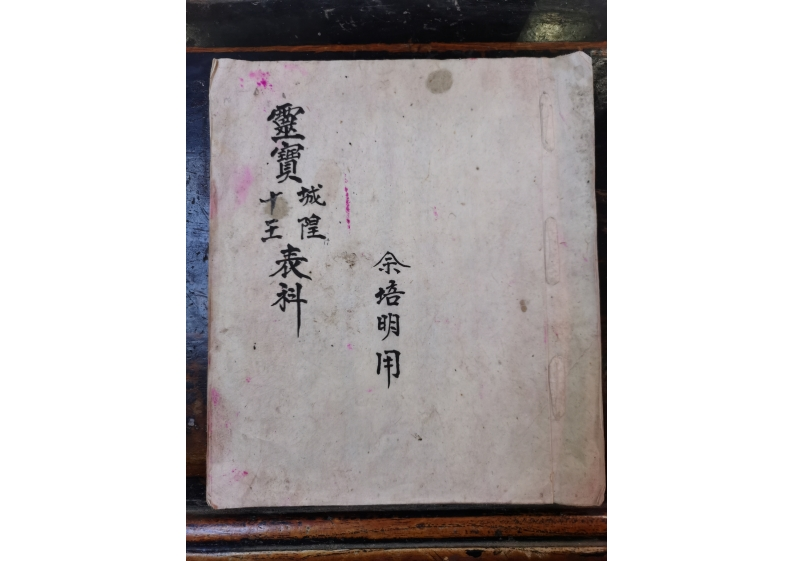 靈寶城隍十王表科
余培明用